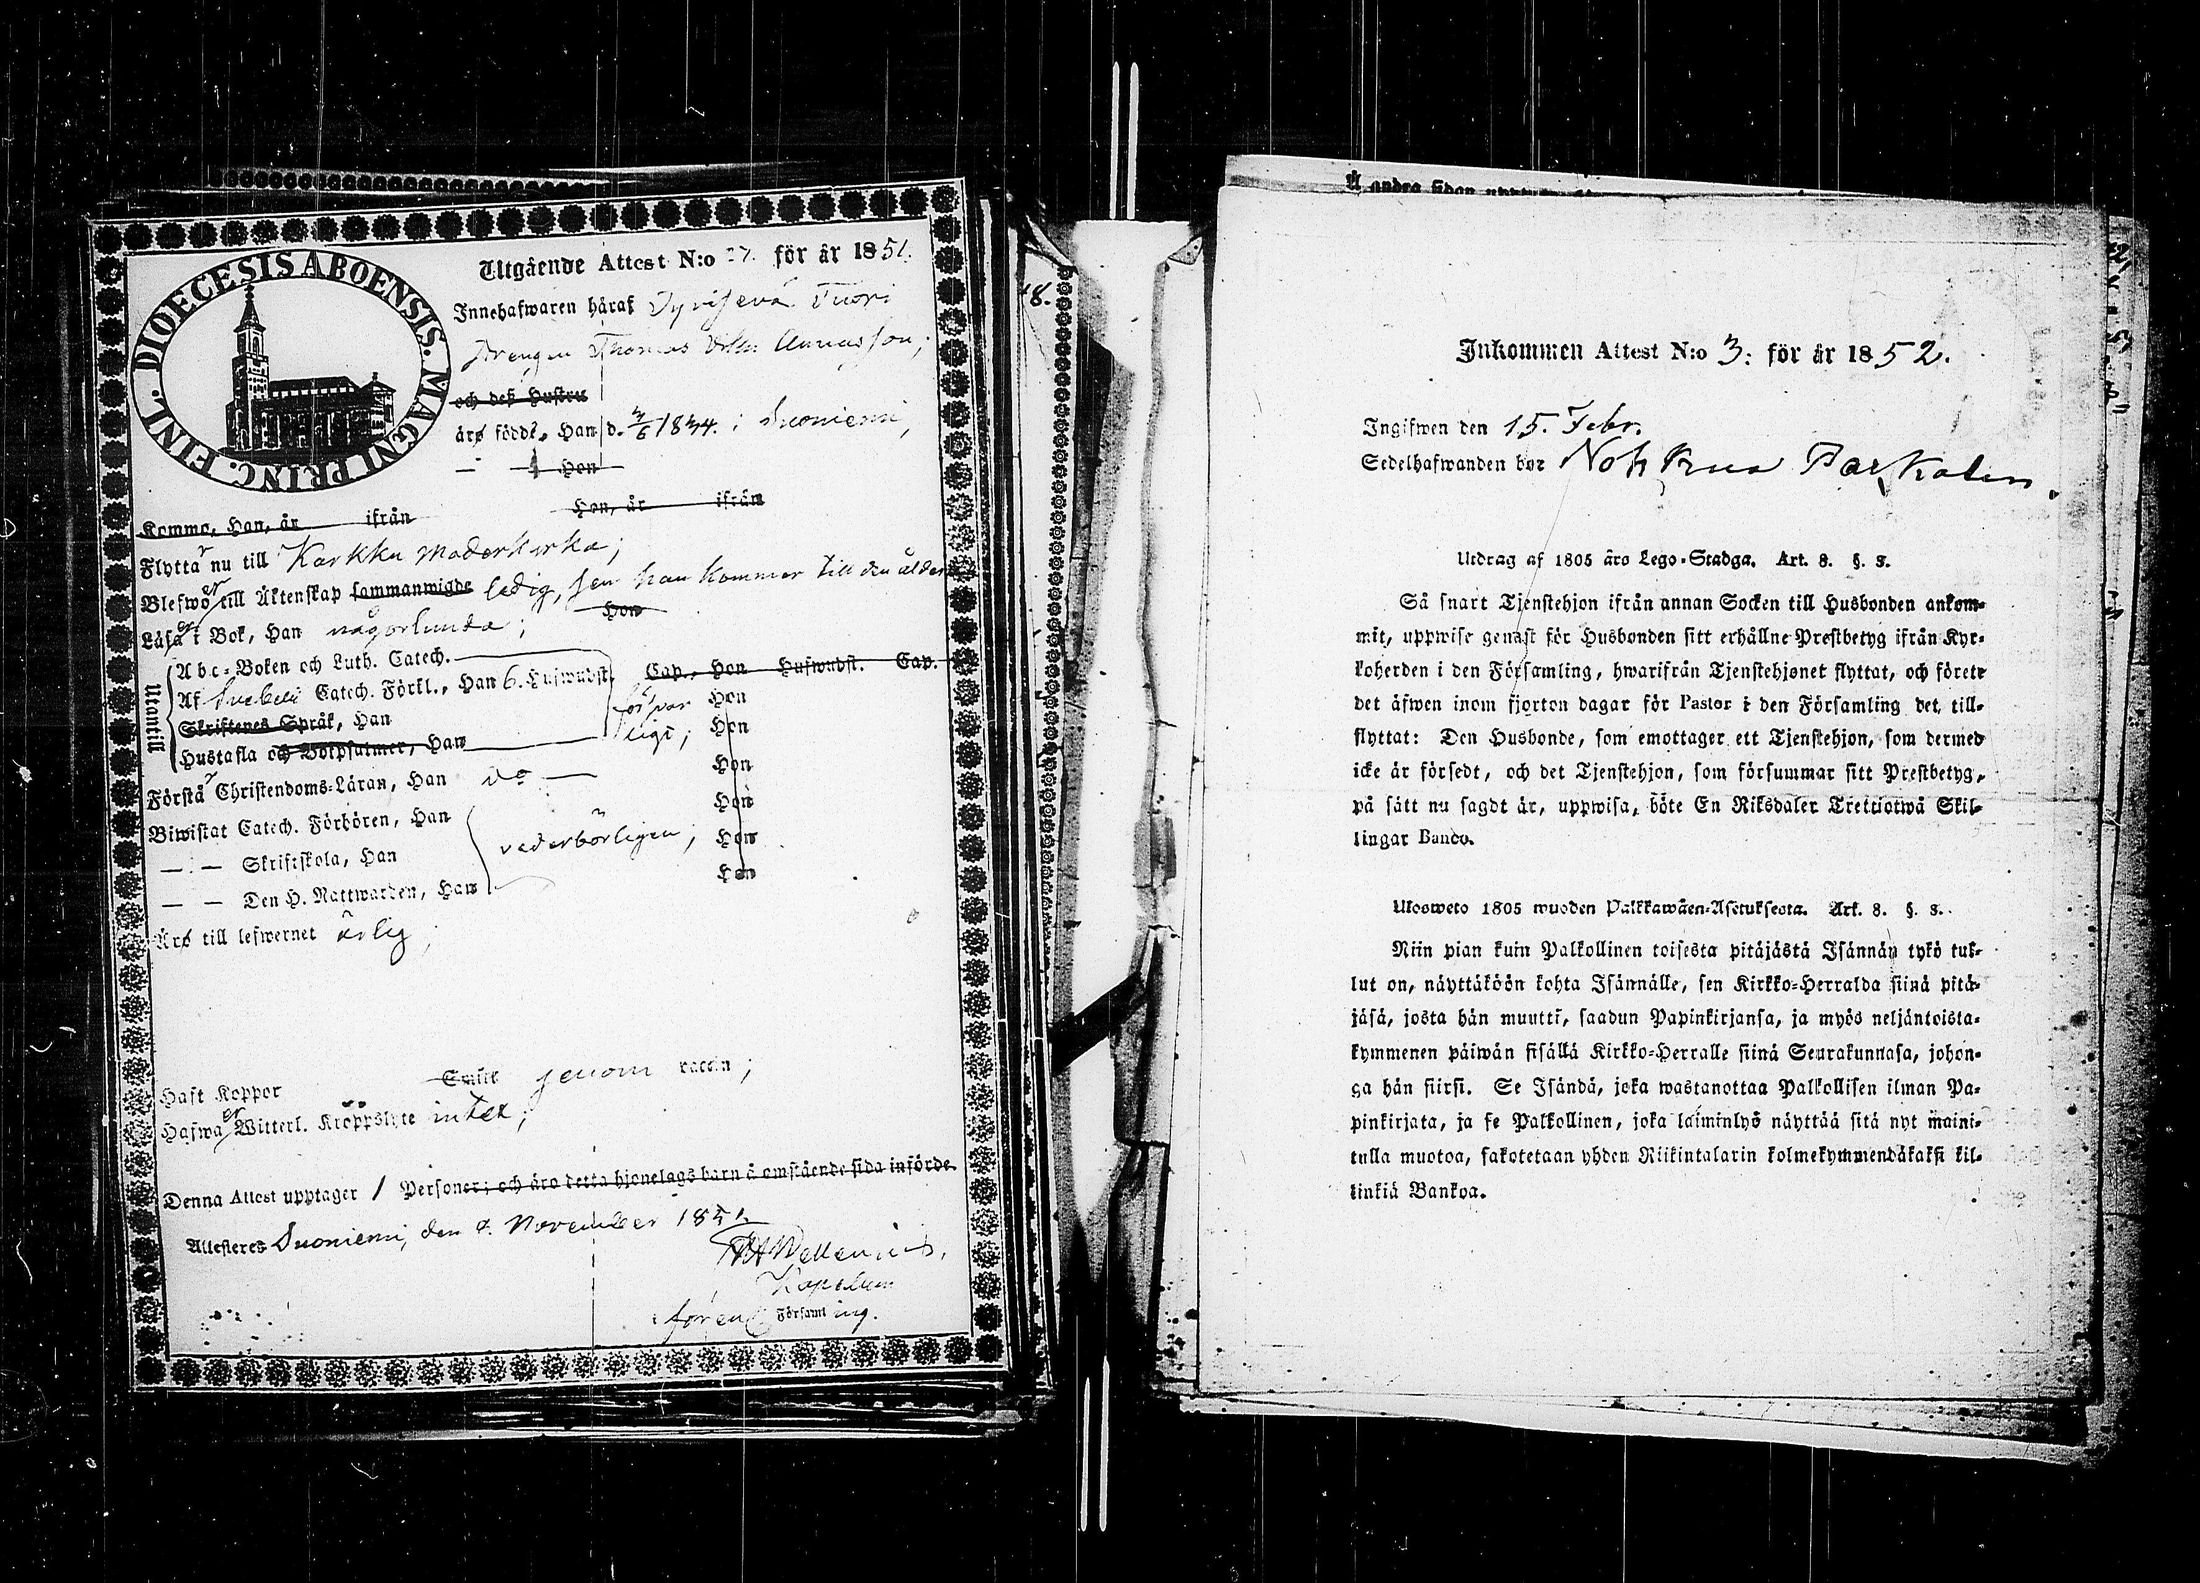 DIOECESIS ABOENSIS. MAGNI PRINC. FINL.
Utgående Attest N:o 27. för år 1851.
Innehafwaren häraf Tuori
Drengen Thomas
och deß Hustru
äro födde, Han d. 1834. i Suoniemi,
— Hon
Komma, Han, år ifrån Hon, år ifrån
Flyttar nu till Karkku Moderkyrka;
Blefwo till Äktenskap sammanwigde ledig, han kommer till den ålder
Läsa i Bok, Han någorlunda; Hon
Utantill
Abc-Boken och Luth. Catech.
Af Svebelii Catech. Förkl., Han 6. Hufwudst. Cap., Hon Hufwudst. Cap.
Skriftenes Språk, Han Hon
Hustafla och Botpsalmer, Han Hon
Förstår Christendoms-Läran, Han do — Hon
Biwistat Catech. Förhören, Han Hon
— — Skriftskola, Han vederbörligen; Hon
— — Den H. Nattwarden, Han Hon
Äro till lefwernet ärlig;
Haft Koppor Smitt genom vaccin;
Hafwa Witterl. Kroppslyte intet;
Denna Attest upptager 1 Personer; och äro detta hjonelags barn å omstående sida införde.
Attesteres Suoniemi, den 9. November 1851.
Kapellan
Församling.
48.
Å andra sidan
Inkommen Attest N:o 3: för år 1852.
Ingifwen den 15. Febr.
Sedelhafwanden bor Nohkua Parkalen.
Utdrag af 1805 års Lego-Stadga. Art. 8. §. 3.
Så snart Tjenstehjon ifrån annan Socken till Husbonden ankom-
mit, uppwise genast för Husbonden sitt erhållne Prestbetyg ifrån Kyr-
koherden i den Församling, hwarifrån Tjenstehjonet flyttat, och förete
det äfwen inom fjorton dagar för Pastor i den Församling det till-
flyttat: Den Husbonde, som emottager ett Tjenstehjon, som dermed
icke är försedt, och det Tjenstehjon, som försummar sitt Prestbetyg,
på sätt nu sagdt är, uppwisa, böte En Riksdaler Trettiotwå Skil-
lingar Banco.
Ulosweto 1805 wuoden Palkkawäen-Asetuksesta. Art. 8. §. 3.
Niin pian kuin Palkollinen toisesta pitäjästä Isännän tykö tul-
lut on, näyttäköön kohta Isännälle, sen Kirkko-Herralda siinä pitä-
jäsä, josta hän muutti, saadun Papinkirjansa, ja myös neljäntoista-
kymmenen päiwän sisällä Kirkko-Herralle siinä Seurakunnasa, johon-
ga hän siirsi. Se Isändä, joka wastanottaa Palkollisen ilman Pa-
pinkirjata, ja se Palkollinen, joka laiminlyö näyttää sitä nyt maini-
tulla muotoa, sakotetaan yhden Riikintalarin kolmekymmendäkaksi kil-
linkiä Bankoa.